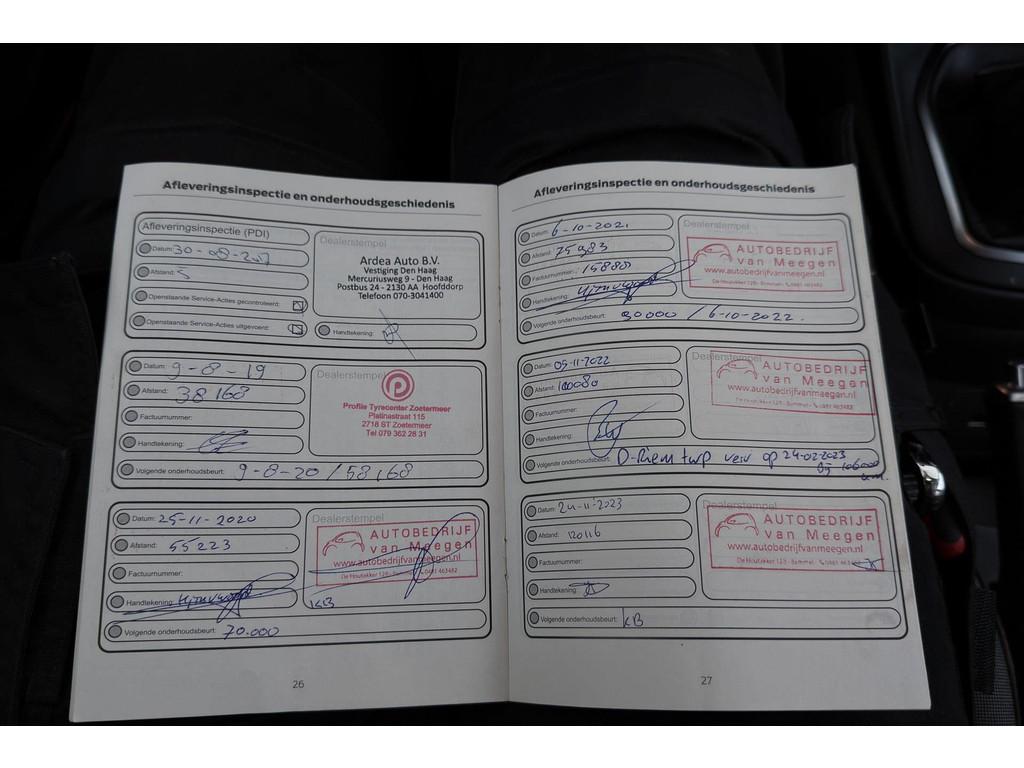 Afleveringsinspectie en onderhoudsgeschiedenis
Afleveringsinspectie (PDI)
Datum: 30-08-2017
Afstand: 5
Openstaande Service-Acties gecontroleerd:
Openstaande Service-Acties uitgevoerd:
Dealerstempel
Ardea Auto B.V.
Vestiging Den Haag
Mercuriusweg 9 - Den Haag
Postbus 24 - 2130 AA Hoofddorp
Telefoon 070-3041400
Handtekening:
Datum: 9-8-19
Afstand: 38168
Factuurnummer:
Handtekening:
Volgende onderhoudsbeurt: 9-8-20 / 58168
Dealerstempel
Profile Tyrecenter Zoetermeer
Platinastraat 115
2718 ST Zoetermeer
Tel 079 362 28 31
Datum: 25-11-2020
Afstand: 55223
Factuurnummer:
Handtekening:
Volgende onderhoudsbeurt: 70.000
Dealerstempel
AUTOBEDRIJF
van Meegen
www.autobedrijfvanmeegen.nl
KB
26
Afleveringsinspectie en onderhoudsgeschiedenis
Datum: 6-10-2021
Afstand: 75983
Factuurnummer: 15888
Handtekening:
Volgende onderhoudsbeurt: 90000 / 6-10-2022.
Dealerstempel
AUTOBEDRIJF
van Meegen
www.autobedrijfvanmeegen.nl
Datum: 05-11-2022
Afstand: 100080
Factuurnummer:
Handtekening:
Volgende onderhoudsbeurt: D-Riem twp verv op 24-02-2023
bij 106000
km.
Dealerstempel
AUTOBEDRIJF
van Meegen
www.autobedrijfvanmeegen.nl
Datum: 24-11-2023
Afstand: 120116
Factuurnummer:
Handtekening:
Volgende onderhoudsbeurt: KB
Dealerstempel
AUTOBEDRIJF
van Meegen
www.autobedrijfvanmeegen.nl
27